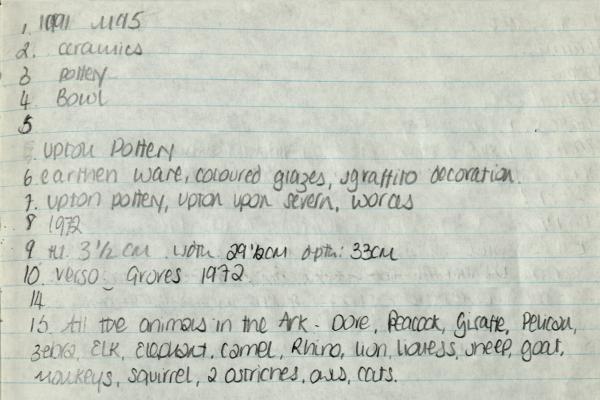 1. 1991 M95
2. ceramics
3 pottery
4 Bowl
5
5. upton Pottery
6. earthen ware, coloured glazes, sgraffito decoration.
7. upton pottery, upton upon severn, worcs
8 1972
9 Ht. 3 1/2 cm width 29 1/2cm dpth: 33cm
10. verso: Groves 1972
14
15. All the animals in the Ark - Dove, Peacock, Giraffe, Pelican,
zebra, Elk, Elephant, camel, Rhino, lion, lioness, sheep, goat,
monkeys, squirrel, 2 ostriches, owls, cats.